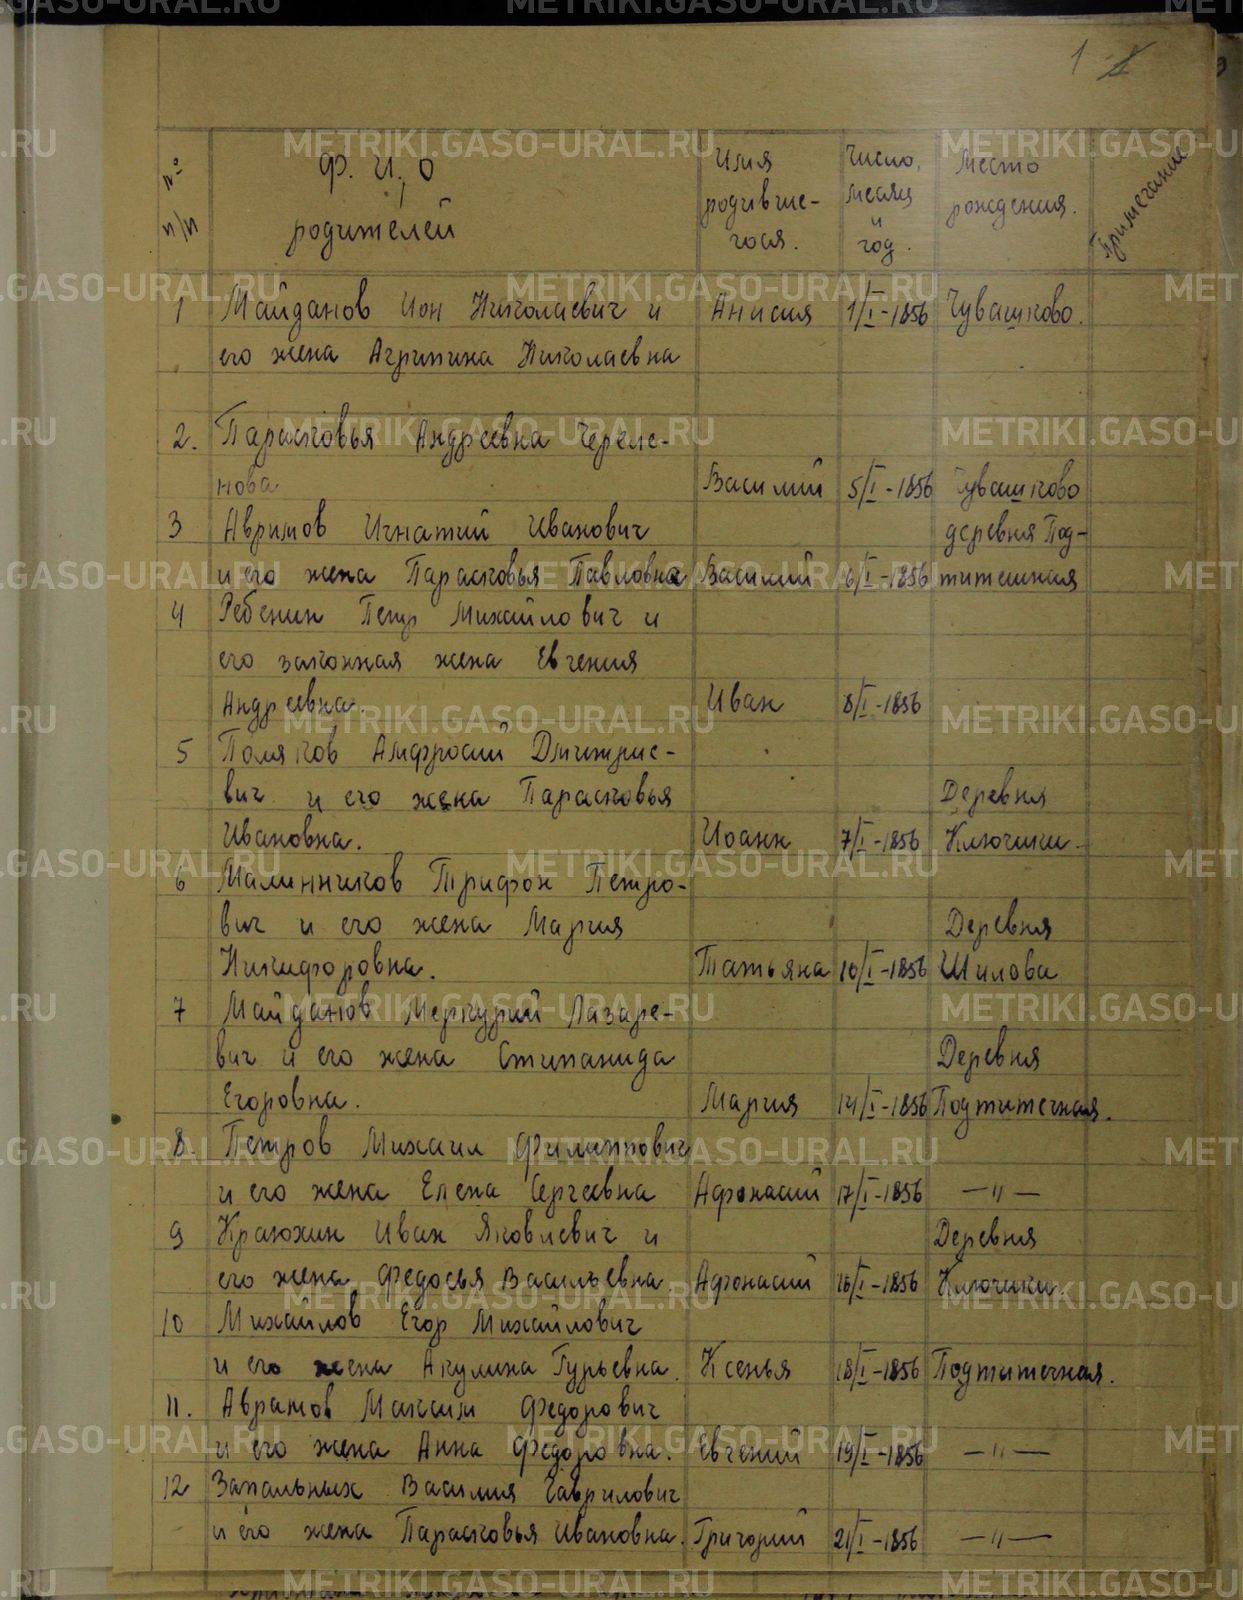 1
№ п/п | Ф. И, О родителей | Имя родившегося. | Число, месяц и год. | Место рождения. | Примечание
1 Майданов Ион Николаевич и | Анисия | 1/I-1856 | Чувашково.
его жена Агрипина Николаевна
2. Парасковья Андреевна Череле-
нова | Василий | 5/I-1856 | Чувашково
3 Авримов Игнатий Иванович | деревня Под-
и его жена Парасковья Павловна | Василий | 6/I-1856 | титешная
4 Ребенин Петр Михайлович и
его законная жена Евгения
Андреевна. | Иван | 8/I-1856
5 Поляков Амфросий Дмитрие-
вич и его жена Парасковья | Деревня
Ивановна. | Иоанн | 7/I-1856 | Ключики.
6 Малинников Трифон Петро-
вич и его жена Мария | Деревня
Никифоровна. | Татьяна | 10/I-1856 | Шилова
7 Майданов Меркурий Лазаре-
вич и его жена Стипанида | Деревня
Егоровна. | Мария | 14/I-1856 | Подтитечная.
8. Петров Михаил Филиппович
и его жена Елена Сергеевна | Афонасий | 17/I-1856 | —"—
9 Краюхин Иван Яковлевич и | Деревня
его жена Федосья Васильевна. | Афонасий | 16/I-1856 | Ключики.
10 Михайлов Егор Михайлович
и его жена Акулина Гурьевна. | Ксенья | 18/I-1856 | Подтитечная.
11. Аврамов Максим Федорович
и его жена Анна Федоровна. | Евгений | 19/I-1856 | —"—
12 Запальных Василия Гаврилович
и его жена Парасковья Ивановна. | Григорий | 21/I-1856 | —"—
METRIKI.GASO-URAL.RU